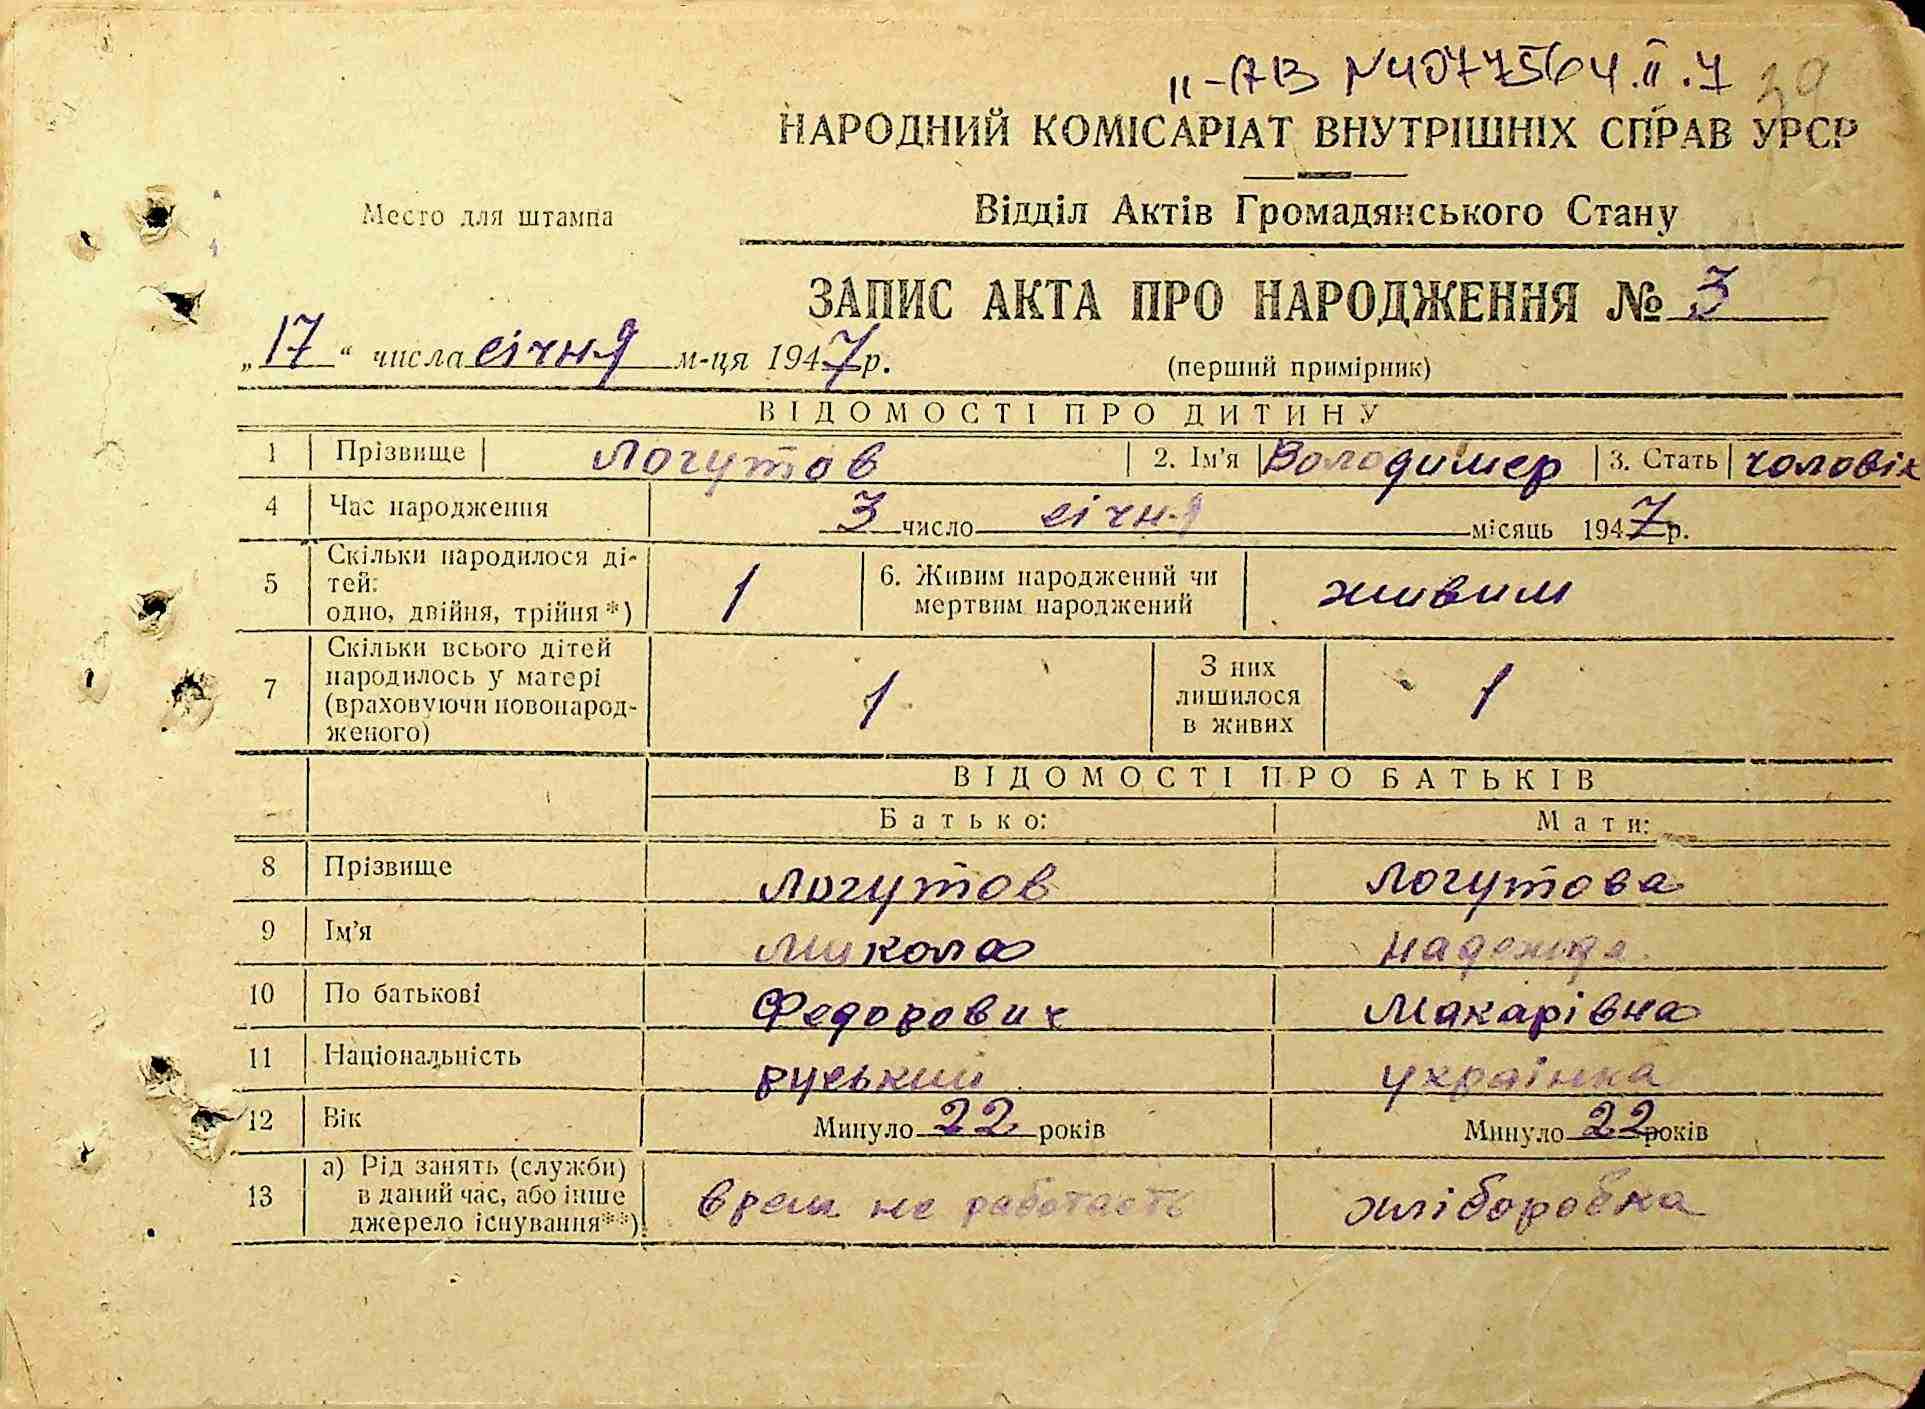 II-АВ №4077564.II.7 39
НАРОДНИЙ КОМІСАРІАТ ВНУТРІШНІХ СПРАВ УРСР
Место для штампа
Відділ Актів Громадянського Стану
ЗАПИС АКТА ПРО НАРОДЖЕННЯ № 3
„17“ числа січня м-ця 1947 р.
(перший примірник)
ВІДОМОСТІ ПРО ДИТИНУ
1 Прізвище Логутов 2. Ім'я Володимер 3. Стать чоловік
4 Час народження 3 число січня місяць 1947 р.
5 Скільки народилося ді-
тей:
одно, двійня, трійня *) 1 6. Живим народжений чи
мертвим народжений живим
7 Скільки всього дітей
народилось у матері
(враховуючи новонарод-
женого) 1 З них
лишилося
в живих 1
ВІДОМОСТІ ПРО БАТЬКІВ
Батько: Мати:
8 Прізвище Логутов Логутова
9 Ім'я Микола Надежда
10 По батькові Федорович Макарівна
11 Національність руський українка
12 Вік Минуло 22 років Минуло 22 років
13 а) Рід занять (служби)
в даний час, або інше
джерело існування**) врем не работаеть хліборобка